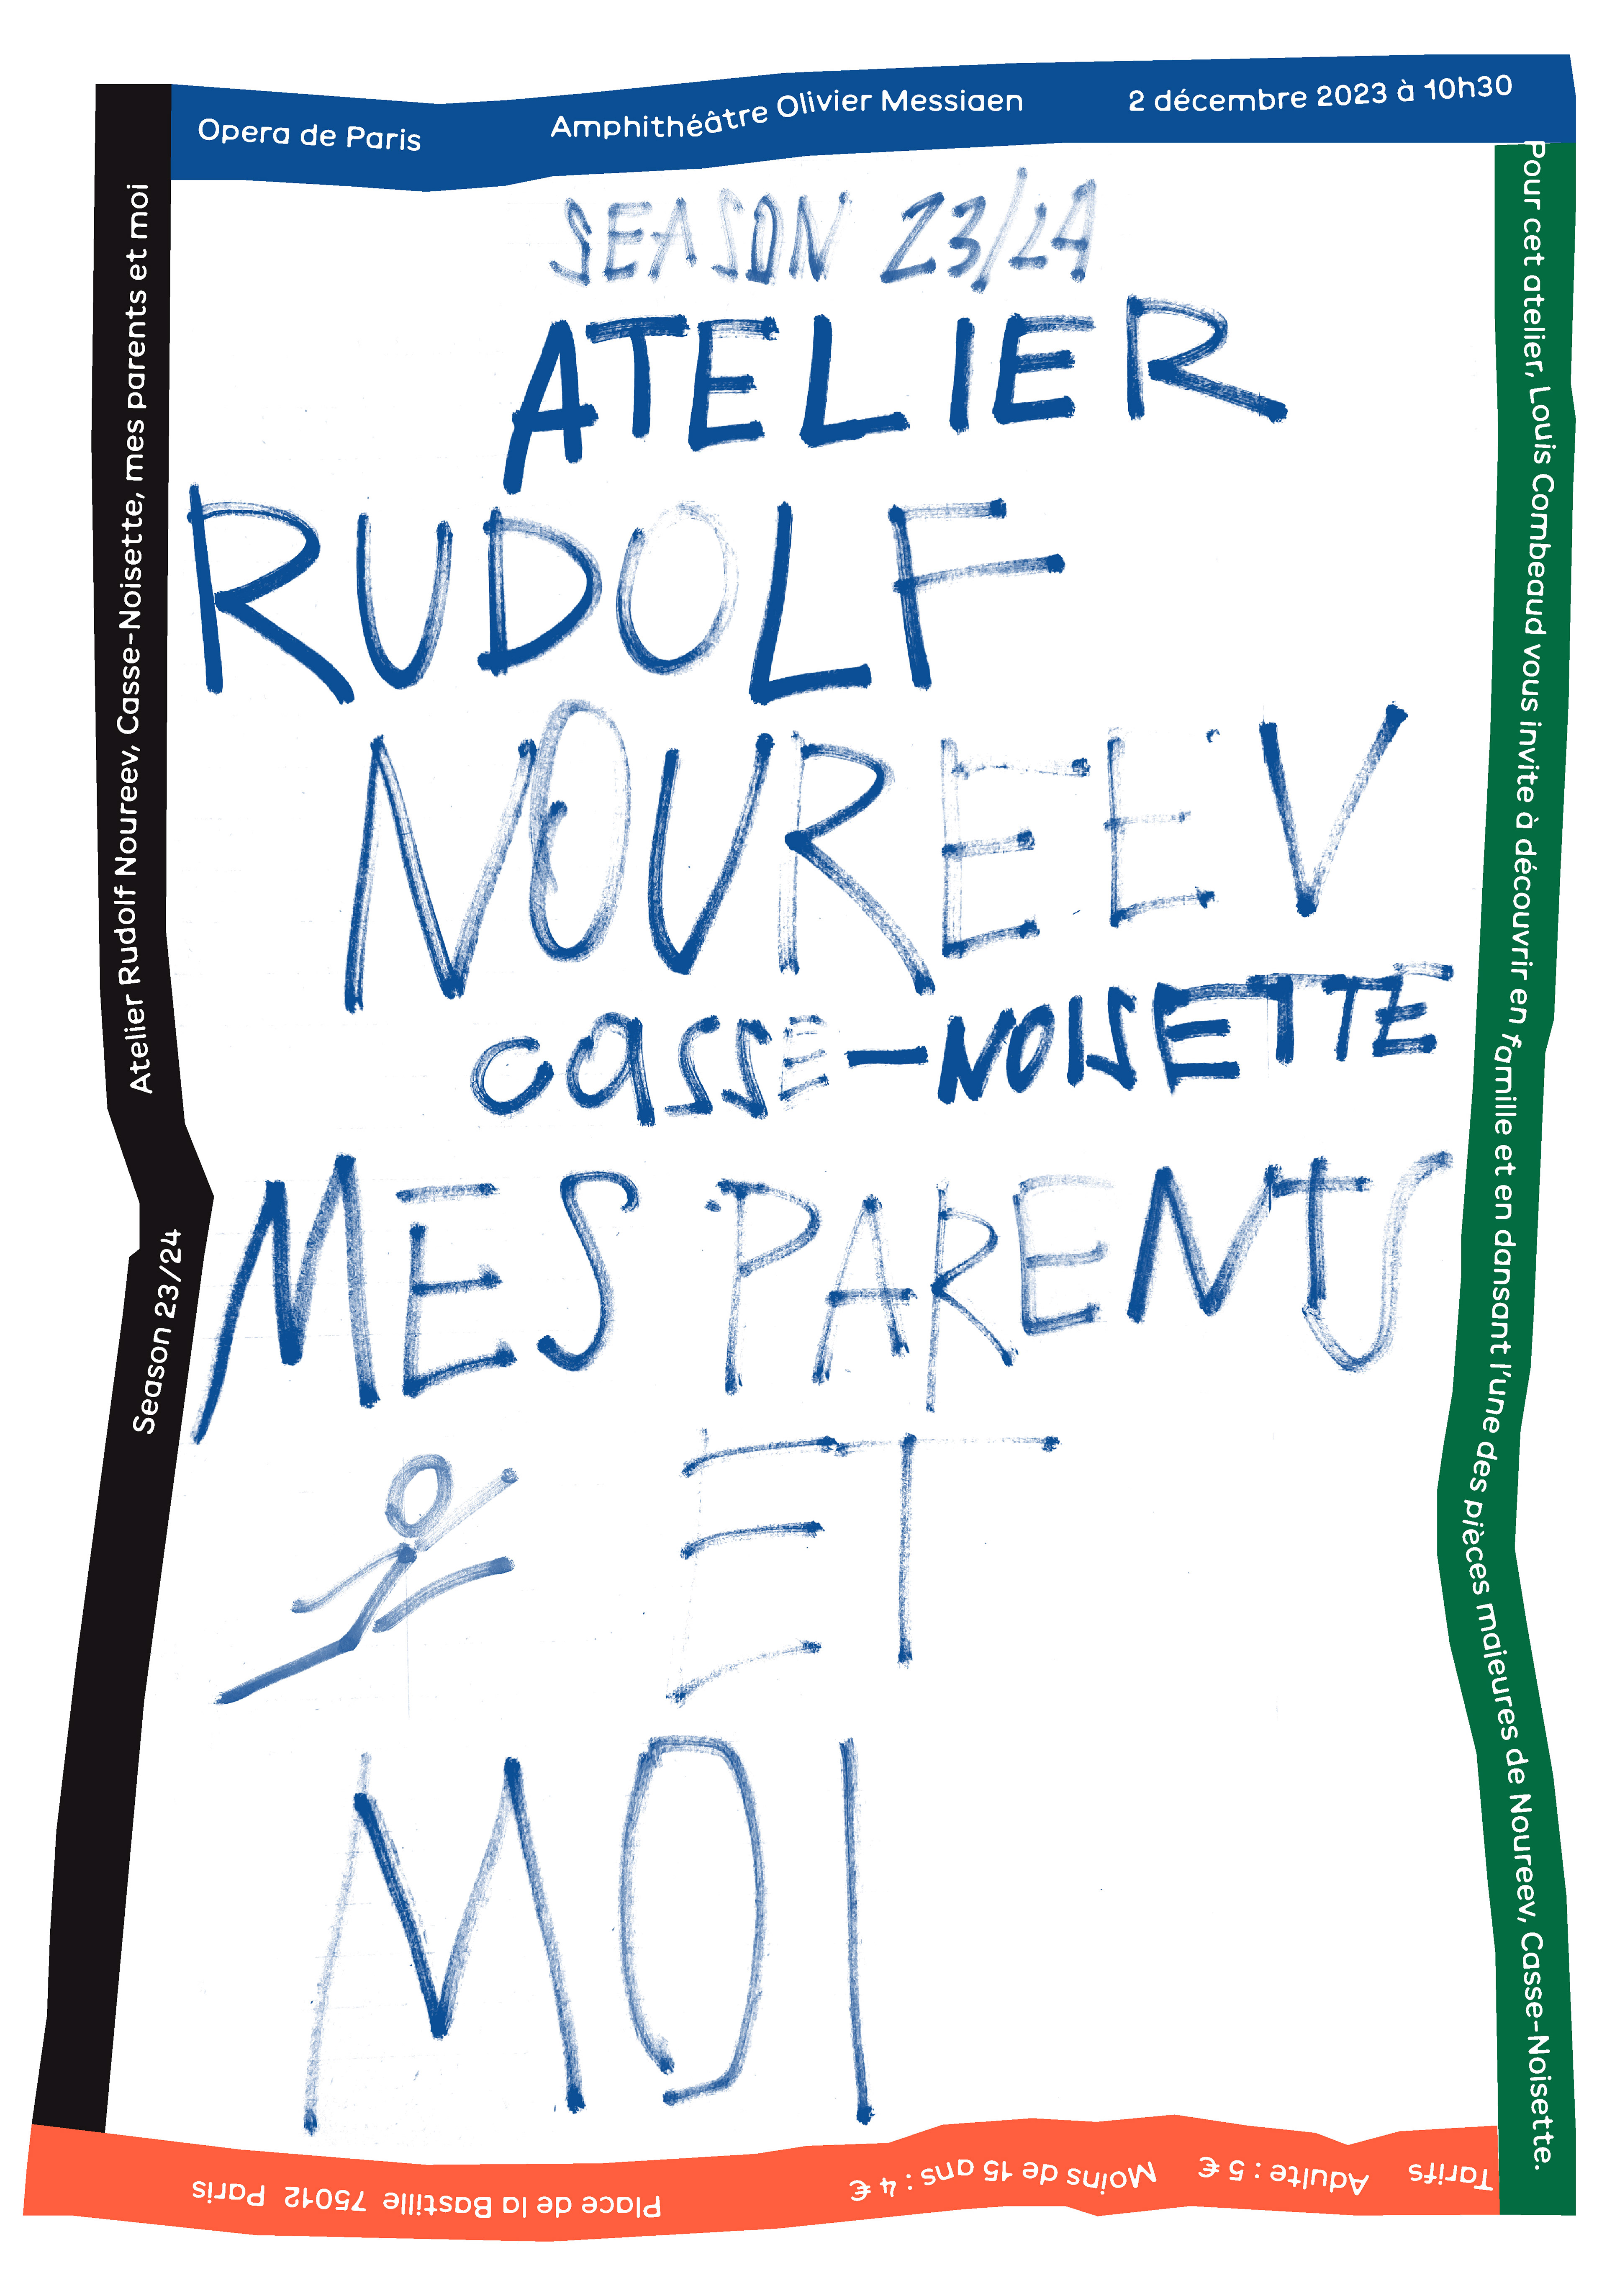 Opera de Paris
Amphithéâtre Olivier Messiaen
2 décembre 2023 à 10h30
SEASON 23/24
ATELIER
RUDOLF
NOUREEV
CASSE-NOISETTE
MES PARENTS
ET
MOI
Pour cet atelier, Louis Combeaud vous invite à découvrir en famille et en dansant l'une des pièces maieures de Noureev, Casse-Noisette.
Tarifs
Adulte : 5 €
Moins de 15 ans : 4 €
Place de la Bastille 75012 Paris
Season 23/24
Atelier Rudolf Noureev, Casse-Noisette, mes parents et moi